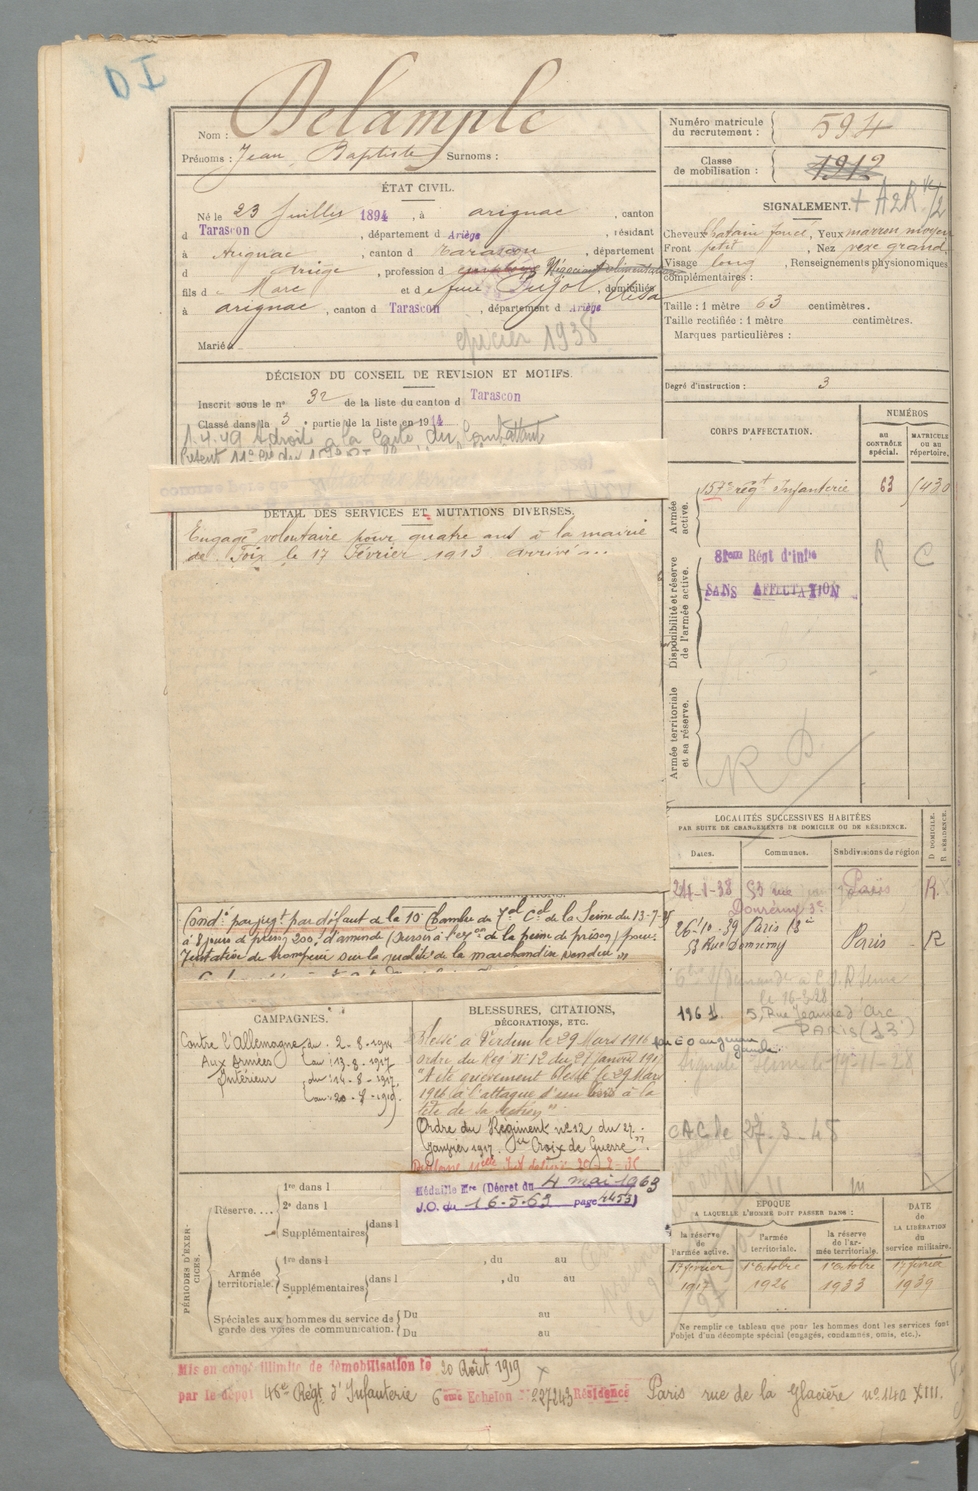 DI
Nom : Delample
Prénoms : Jean Baptiste Surnoms :
ÉTAT CIVIL.
Né le 23 Juillet 1894, à Arignac, canton
d Tarascon, département d Ariège, résidant
à Arignac, canton d Tarascon, département
d Ariège, profession d employé Négociant alimentation
fils d Marc et d feue Pujol Elisa, domiciliés
à Arignac, canton d Tarascon, département d Ariège
Marié à
épicier 1938
DÉCISION DU CONSEIL DE REVISION ET MOTIFS.
Inscrit sous le n° 32 de la liste du canton d Tarascon
Classé dans la 3e partie de la liste en 1914
1.4.49 A droit à la Carte du Combattant
DÉTAIL DES SERVICES ET MUTATIONS DIVERSES.
Engagé volontaire pour quatre ans à la mairie
de Foix le 17 Février 1913 arrivé
Condé par jugt par défaut de la 10e Chambre du Tal Cel de la Seine du 13-7-35
à 8 jours de prison 200f d'amende (Sursis à l'exon de la peine de prison) pour
Tentative de tromperie sur la qualité de la marchandise vendue
CAMPAGNES.
Contre l'Allemagne du 2-8-1914
Aux Armées au 13-8-1917
Intérieur du 14-8-1917
au 20-8-1919
BLESSURES, CITATIONS,
DÉCORATIONS, ETC.
Blessé à Verdun le 29 Mars 1916
Ordre du Reg. N° 12 du 27 janvier 191
"A été grièvement blessé le 29 Mars
1916 à l'attaque d'un bois à la
tête de sa section"
Ordre du Régiment n° 12 du 27
Janvier 1917. Croix de Guerre
Médaille Mre (Décret du 4 mai 1963
J.O. du 16-5-63 page 4453)
PÉRIODES D'EXERCICES.
Réserve....
1re dans l
2e dans l
Supplémentaires dans l
Armée territoriale.
1re dans l , du au
Supplémentaires dans l , du au
Spéciales aux hommes du service de garde des voies de communication.
Du au
Du au
Mis en congé illimité de démobilisation le 20 Août 1919
par le dépôt 46e Régt d'Infanterie 6ème Echelon N° 227243 Résidence Paris rue de la Glacière n° 140 XIII.
Numéro matricule
du recrutement : 594
Classe
de mobilisation : 1912
SIGNALEMENT.
Cheveux Chatain foncé, Yeux marron moyen
Front petit, Nez vexe grand
Visage long, Renseignements physionomiques
complémentaires :
Taille : 1 mètre 63 centimètres.
Taille rectifiée : 1 mètre centimètres.
Marques particulières :
Degré d'instruction : 3
CORPS D'AFFECTATION.
NUMÉROS
AU CONTRÔLE spécial.
MATRICULE OU AU répertoire.
Armée active.
157e régt Infanterie 63
Disponibilité et réserve de l'armée active.
81ème Régt d'Infie R C
SANS AFFECTATION
Armée territoriale et sa réserve.
LOCALITÉS SUCCESSIVES HABITÉES
PAR SUITE DE CHANGEMENTS DE DOMICILE OU DE RÉSIDENCE.
D DOMICILE. R RÉSIDENCE.
Dates. Communes. Subdivisions de région
24-1-38 53 rue Paris R.
Domrémy 13e
26-10-39 Paris 13e
53 Rue Domremy Paris R
1961 5, Rue Jeanne d'Arc
PARIS (13)
27-3-45
ÉPOQUE
A LAQUELLE L'HOMME DOIT PASSER DANS :
la réserve de l'armée active.
l'armée territoriale.
la réserve de l'armée territoriale.
DATE de LA LIBÉRATION du service militaire.
17 février 1917
1er Octobre 1926
1er Octobre 1933
17 février 1939
Ne remplir ce tableau que pour les hommes dont les services font
l'objet d'un décompte spécial (engagés, condamnés, omis, etc.).